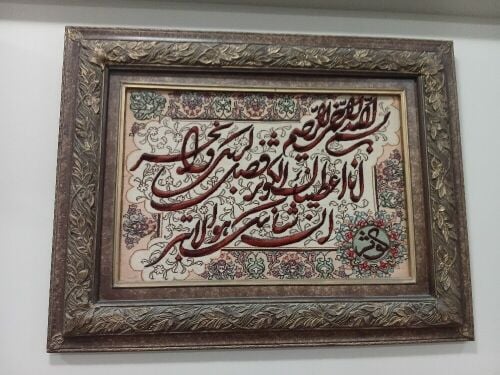 بسم الله الرحمن الرحیم
انا اعطیناک الکوثر فصل لربک وانحر
ان شانئک هو الابتر